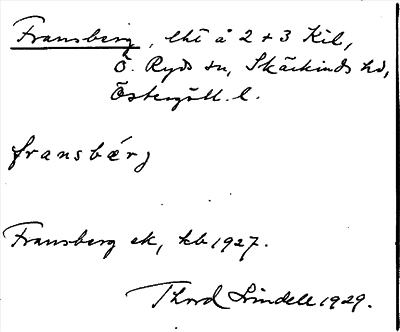 Fransberg, lht å 2 + 3 Kil,
Ö. Ryds sn, Skärkinds hd,
Östergötl. l.
fransbærj
Fransberg ek, kb 1927.
Thord Lindell 1929.